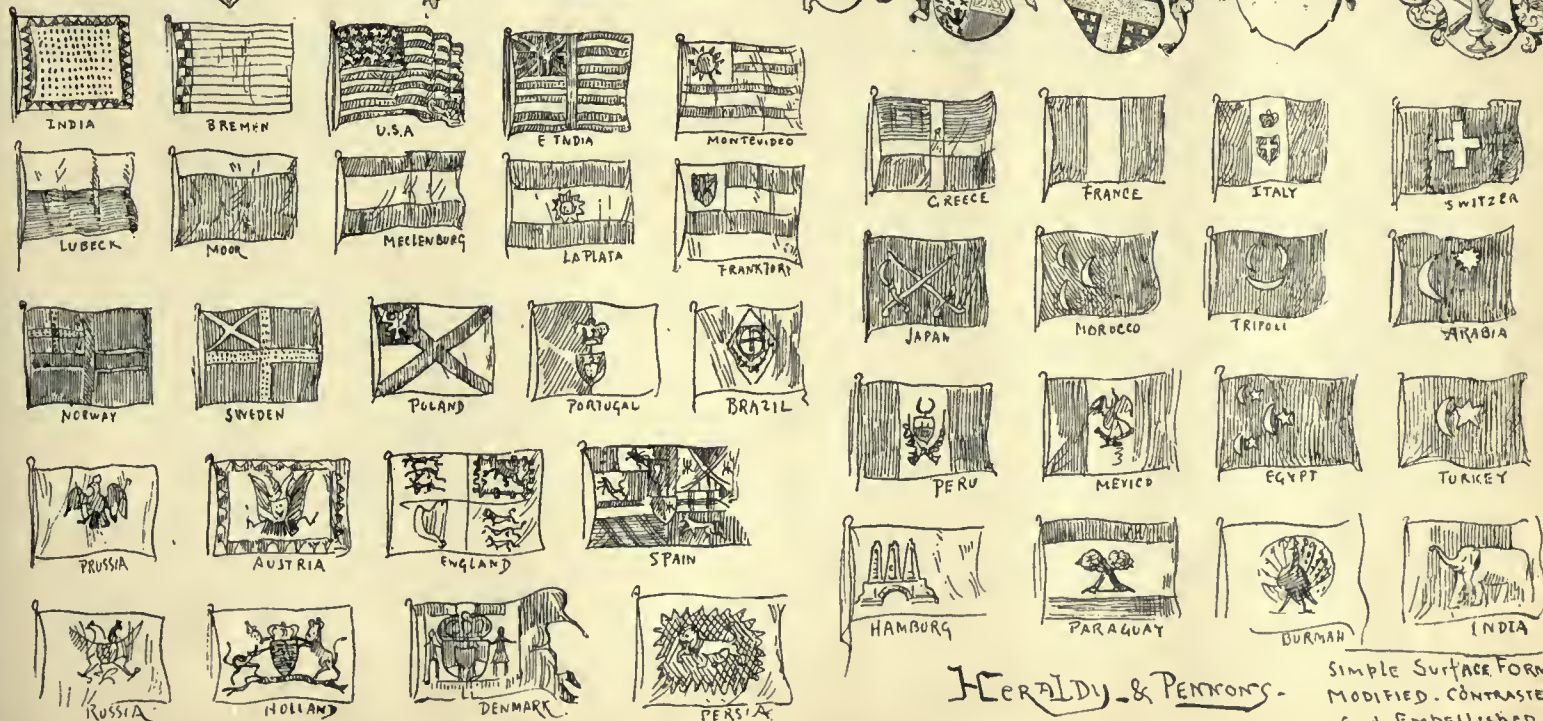 INDIA
BREMEN
U.S.A
E INDIA
MONTEVIDEO
LUBECK
MOOR
MECLENBURG
LA PLATA
FRANKFORT
NORWAY
SWEDEN
POLAND
PORTUGAL
BRAZIL
PRUSSIA
AUSTRIA
ENGLAND
SPAIN
RUSSIA
HOLLAND
DENMARK
PERSIA
GREECE
FRANCE
ITALY
SWITZER
JAPAN
MOROCCO
TRIPOLI
ARABIA
PERU
MEXICO
EGYPT
TURKEY
HAMBURG
PARAGUAY
BURMAH
INDIA
HERALDY & PENNONS-
SIMPLE SURFACE FORM
MODIFIED. CONTRASTE
Embellished